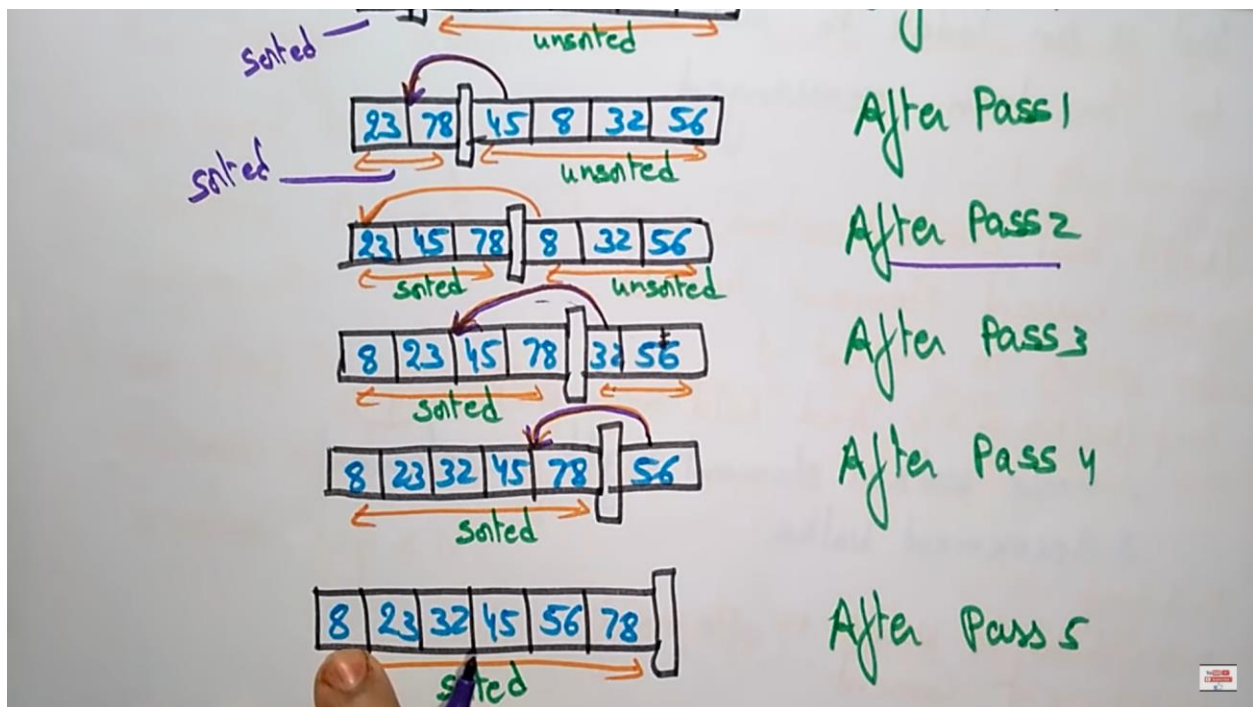 sorted
unsorted
23 78 45 8 32 56
After Pass 1
sorted
unsorted
23 45 78 8 32 56
After Pass 2
sorted
unsorted
8 23 45 78 32 56
After Pass 3
sorted
8 23 32 45 78 56
After Pass 4
sorted
8 23 32 45 56 78
After Pass 5
sorted